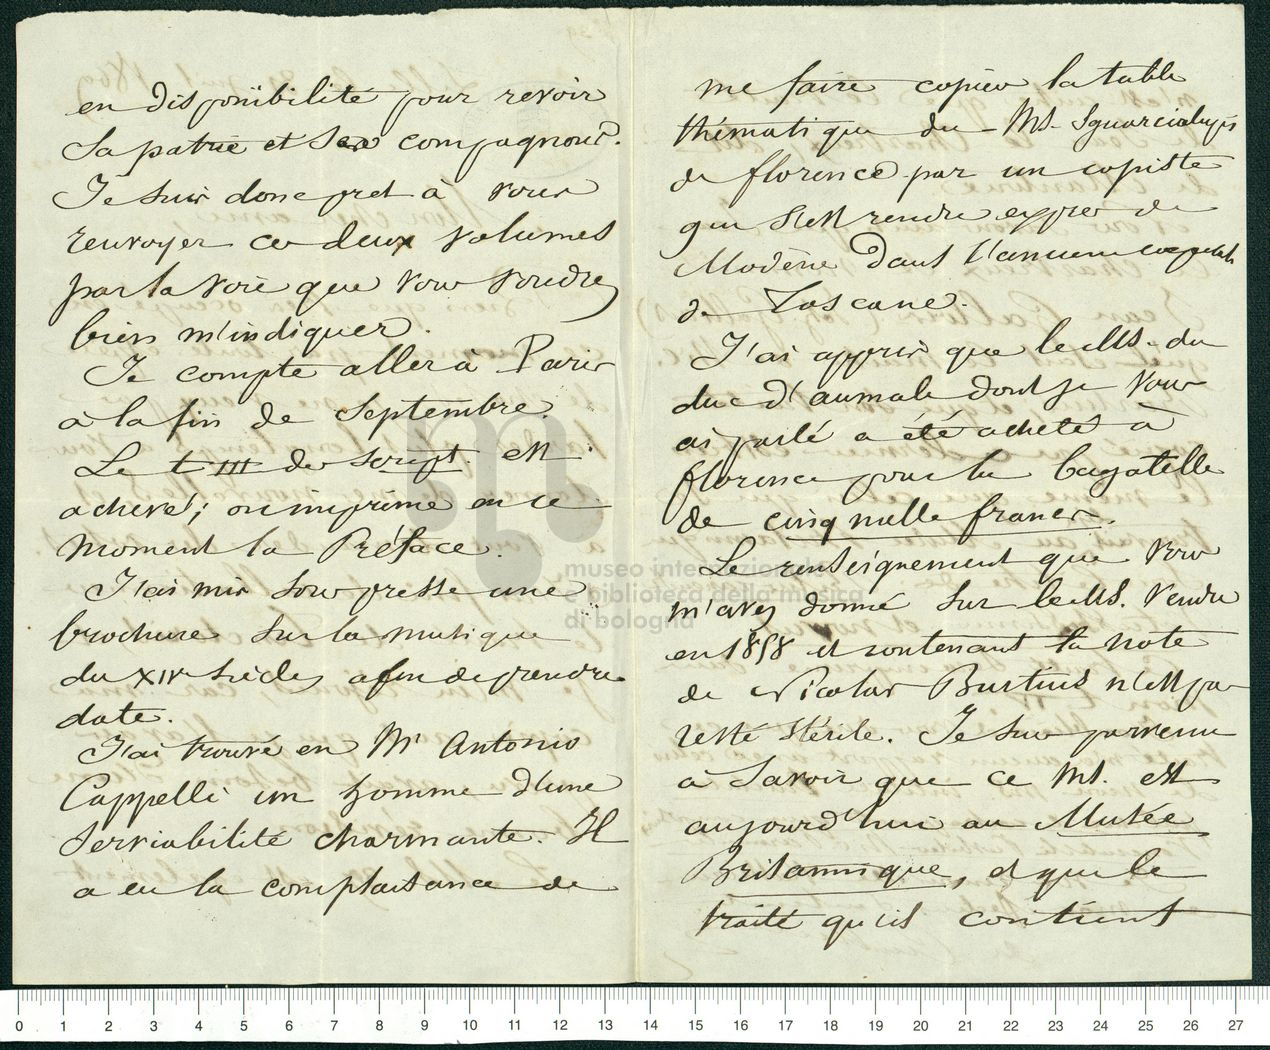 en disponibilité pour revoir
sa patrie et ses compagnons.
Je suis donc pret à vous
renvoyer ces deux volumes
par la voie que vous voudrez
bien m'indiquer.
Je compte aller à Paris
à la fin de Septembre.
Le t III des Script est
achevé; on imprime en ce
moment la Préface.
J'ai mis sous presse une
brochure sur la musique
du XIVe siècle, afin de prendre
date.
J'ai trouvé en Mr Antonio
Cappelli un homme d'une
serviabilité charmante. Il
a eu la complaisance de
me faire copier la table
thématique du MS. Squarcialupi
de florence par un copiste
qui s'est rendu exprès de
Modène dans l'ancienne capitale
de Toscane.
J'ai appris que le MS. du
duc d'aumale dont je vous
ai parlé a été acheté à
florence pour la bagatelle
de cinq mille francs.
Le renseignement que vous
m'avez donné sur le MS. vendu
en 1858 et contenant la note
de Nicolas Burtius n'est pas
resté stérile. Je suis parvenu
à savoir que ce MS. est
aujourd'hui au Musée
Britannique, et que le
traité qu'il contient
museo internazionale
e biblioteca della musica
di bologna
0 1 2 3 4 5 6 7 8 9 10 11 12 13 14 15 16 17 18 19 20 21 22 23 24 25 26 27